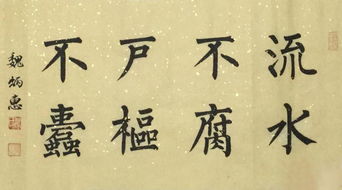 流水
不腐
户樞
不蠹
魏炳惠